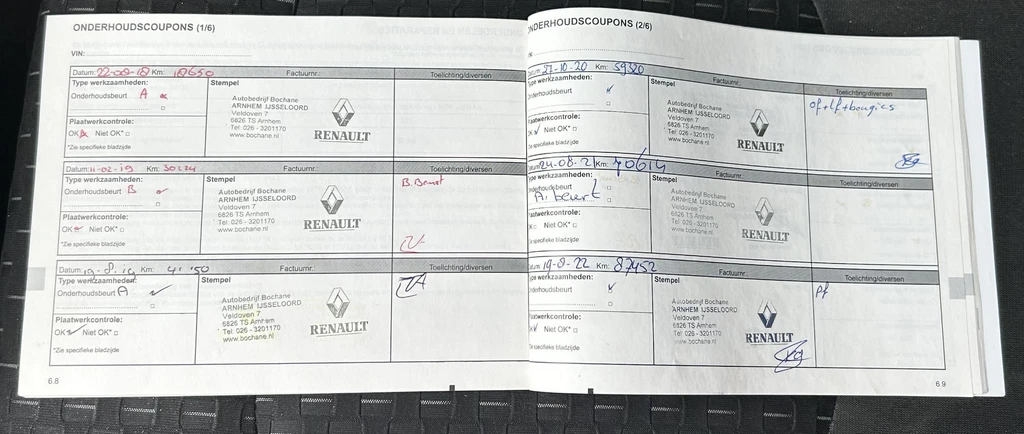 ONDERHOUDSCOUPONS (1/6)
VIN:
Datum: 22-08-18 Km: 18650 Factuurnr.: Toelichting/diversen
Type werkzaamheden: Stempel
Onderhoudsbeurt A
Autobedrijf Bochane
ARNHEM IJSSELOORD
Veldoven 7
6826 TS Arnhem
Tel: 026 - 3201170
www.bochane.nl
RENAULT
Plaatwerkcontrole:
OK Niet OK*
*Zie specifieke bladzijde
Datum: 11-02-19 Km: Factuurnr.: Toelichting/diversen
Type werkzaamheden: Stempel
Onderhoudsbeurt B
Autobedrijf Bochane
ARNHEM IJSSELOORD
Veldoven 7
6826 TS Arnhem
Tel: 026 - 3201170
www.bochane.nl
RENAULT
B.
Plaatwerkcontrole:
OK Niet OK*
*Zie specifieke bladzijde
Datum: 19-8-19 Km: Factuurnr.: Toelichting/diversen
Type werkzaamheden: Stempel
Onderhoudsbeurt A
Autobedrijf Bochane
ARNHEM IJSSELOORD
Veldoven 7
6826 TS Arnhem
Tel: 026 - 3201170
www.bochane.nl
RENAULT
Plaatwerkcontrole:
OK Niet OK*
*Zie specifieke bladzijde
6.8
ONDERHOUDSCOUPONS (2/6)
Km: 59320 Factuurnr.: Toelichting/diversen
Type werkzaamheden: Stempel
Onderhoudsbeurt
of+lf+bougies
Autobedrijf Bochane
ARNHEM IJSSELOORD
Veldoven 7
6826 TS Arnhem
Tel: 026 - 3201170
www.bochane.nl
RENAULT
Plaatwerkcontrole:
OK Niet OK*
*Zie specifieke bladzijde
Km: 70614 Factuurnr.: Toelichting/diversen
Type werkzaamheden: Stempel
Onderhoudsbeurt
A. beurt
Autobedrijf Bochane
ARNHEM IJSSELOORD
Veldoven 7
6826 TS Arnhem
Tel: 026 - 3201170
www.bochane.nl
RENAULT
Plaatwerkcontrole:
Niet OK*
*Zie specifieke bladzijde
Datum: 19-8-22 Km: 87452 Factuurnr.: Toelichting/diversen
Type werkzaamheden: Stempel
Onderhoudsbeurt
Autobedrijf Bochane
ARNHEM IJSSELOORD
Veldoven 7
6826 TS Arnhem
Tel: 026 - 3201170
www.bochane.nl
RENAULT
Plaatwerkcontrole:
OK Niet OK*
*Zie specifieke bladzijde
6.9